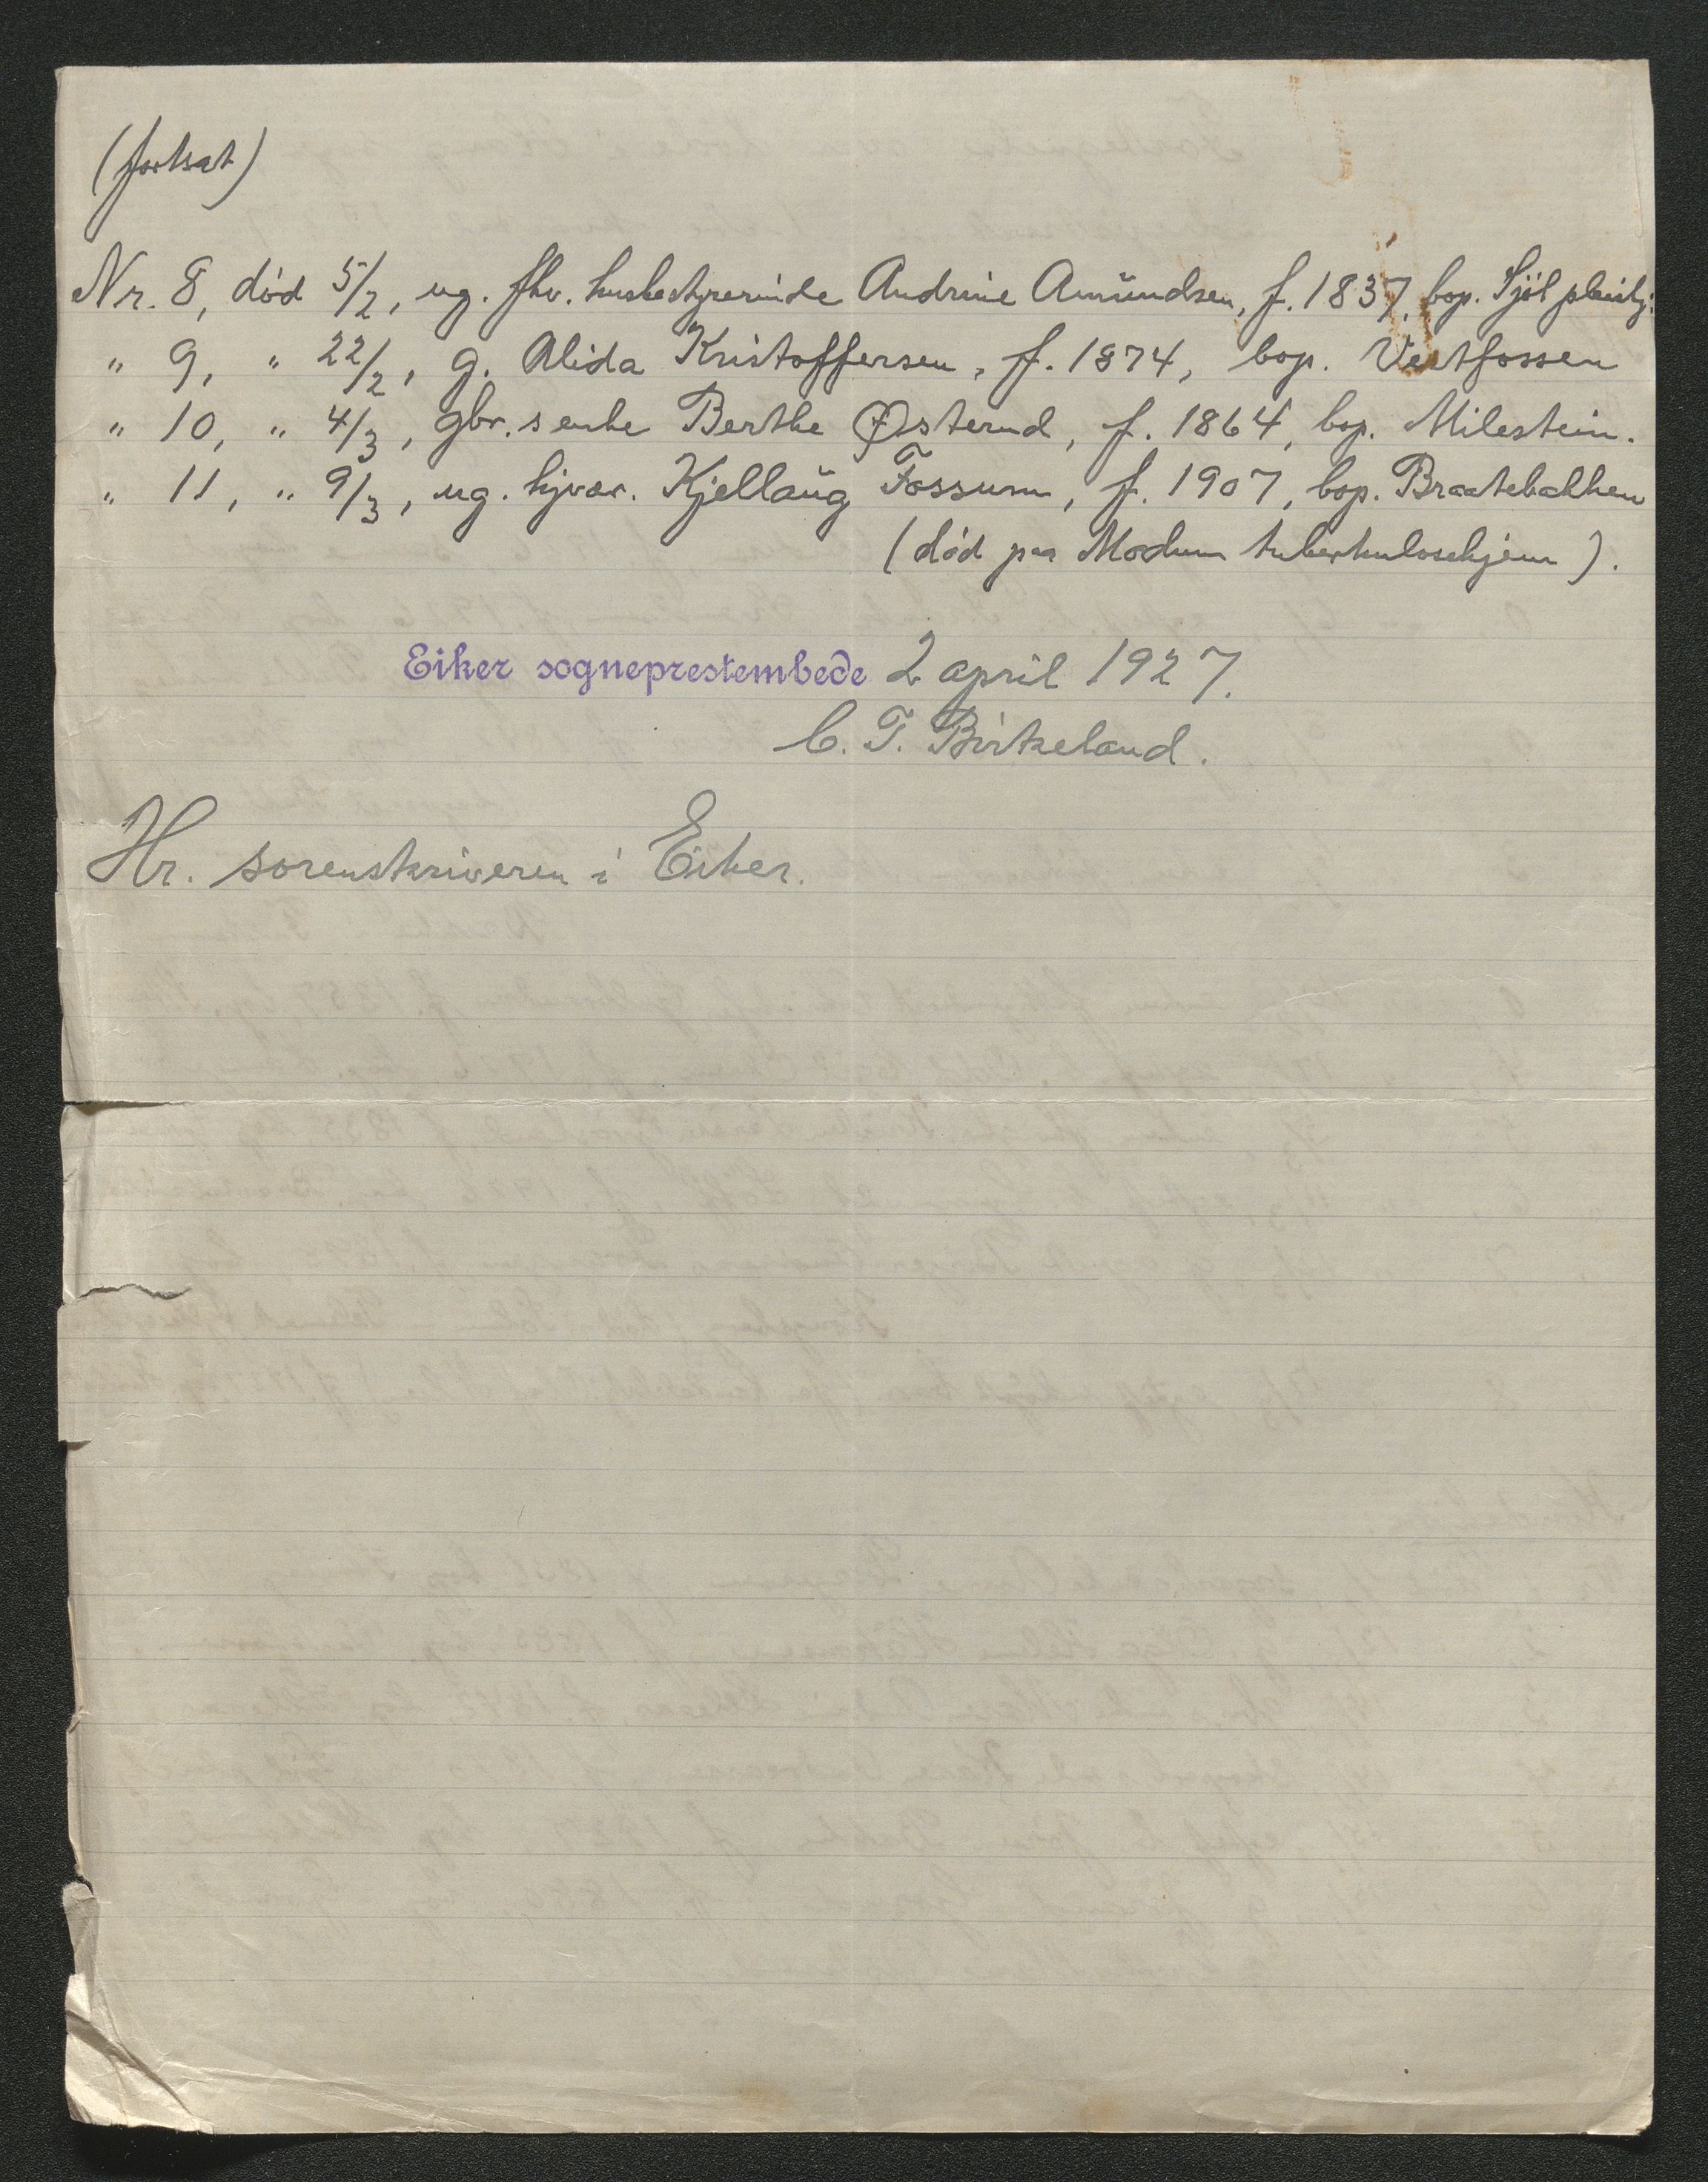 (fortsat)
Nr. 8, død 5/2, ug. fhv. husbestyrerinde Andrine Amundsen, f. 1837, bop. Sjøl pleiehj.
" 9, " 22/2, g. Alida Kristoffersen, f. 1874, bop. Vestfossen
" 10, " 4/3, gbr.s enke Berthe Østerud, f. 1864, bop. Milestein.
" 11, " 9/3, ug. hjvær. Kjellaug Fossum, f. 1907, bop. Braatebakken
(død paa Modum tuberkulosehjem).
Eiker sogneprestembede 2 april 1927.
C. T. Birkeland.
Hr. sorenskriveren i Eiker.